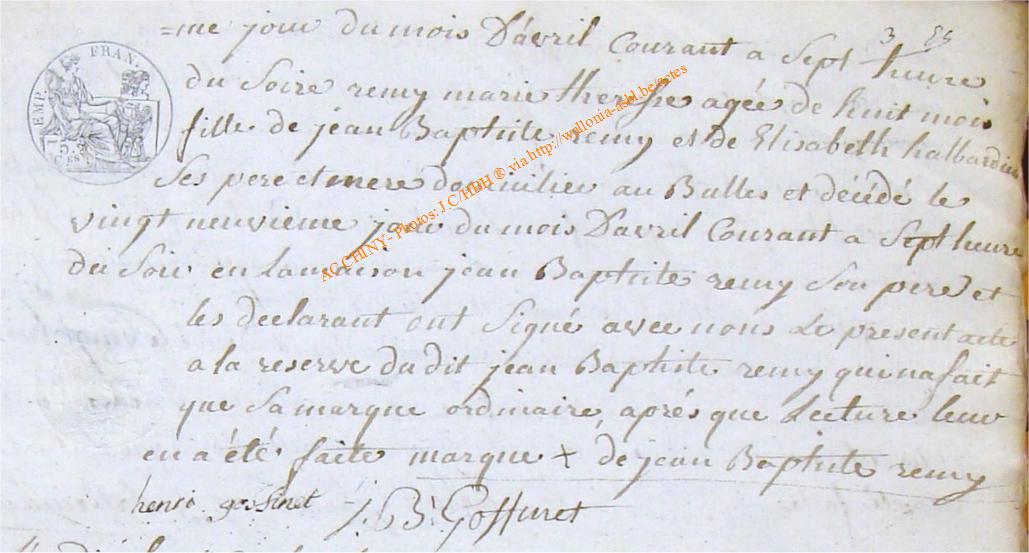 3 85
=me jour du mois D'avril Courant a Sept heure
du Soire remy marie theresse agée de huit mois
fille de jean Baptiste remy et de Elisabeth halbardier
Ses pere et mere domicilies au Bulles et décédé le
vingt neuvieme jour du mois D'avril Courant a Sept heure
du Soir en La maison jean Baptiste remy Son pere et
les declarant ont Signe avec nous Le present acte
a la reserve du dit jean Baptiste remy qui na fait
que Sa marque ordinaire, aprés que Lecture leur
en a été faite marque + de jean Baptiste remy
henri gossinet J. B. Goffinet
EMP. FRAN.
75
CES
AC CHINY - Photos: J.C/HBH ® via http://wallonia-asbl.be/actes